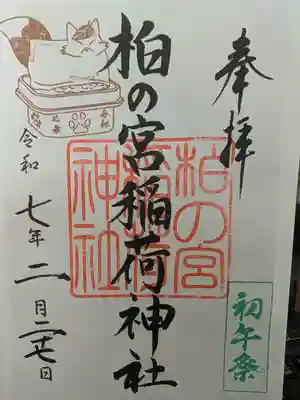 奉拝
初午祭
柏の宮稲荷神社
柏の宮
神社
令和七年二月二十七日